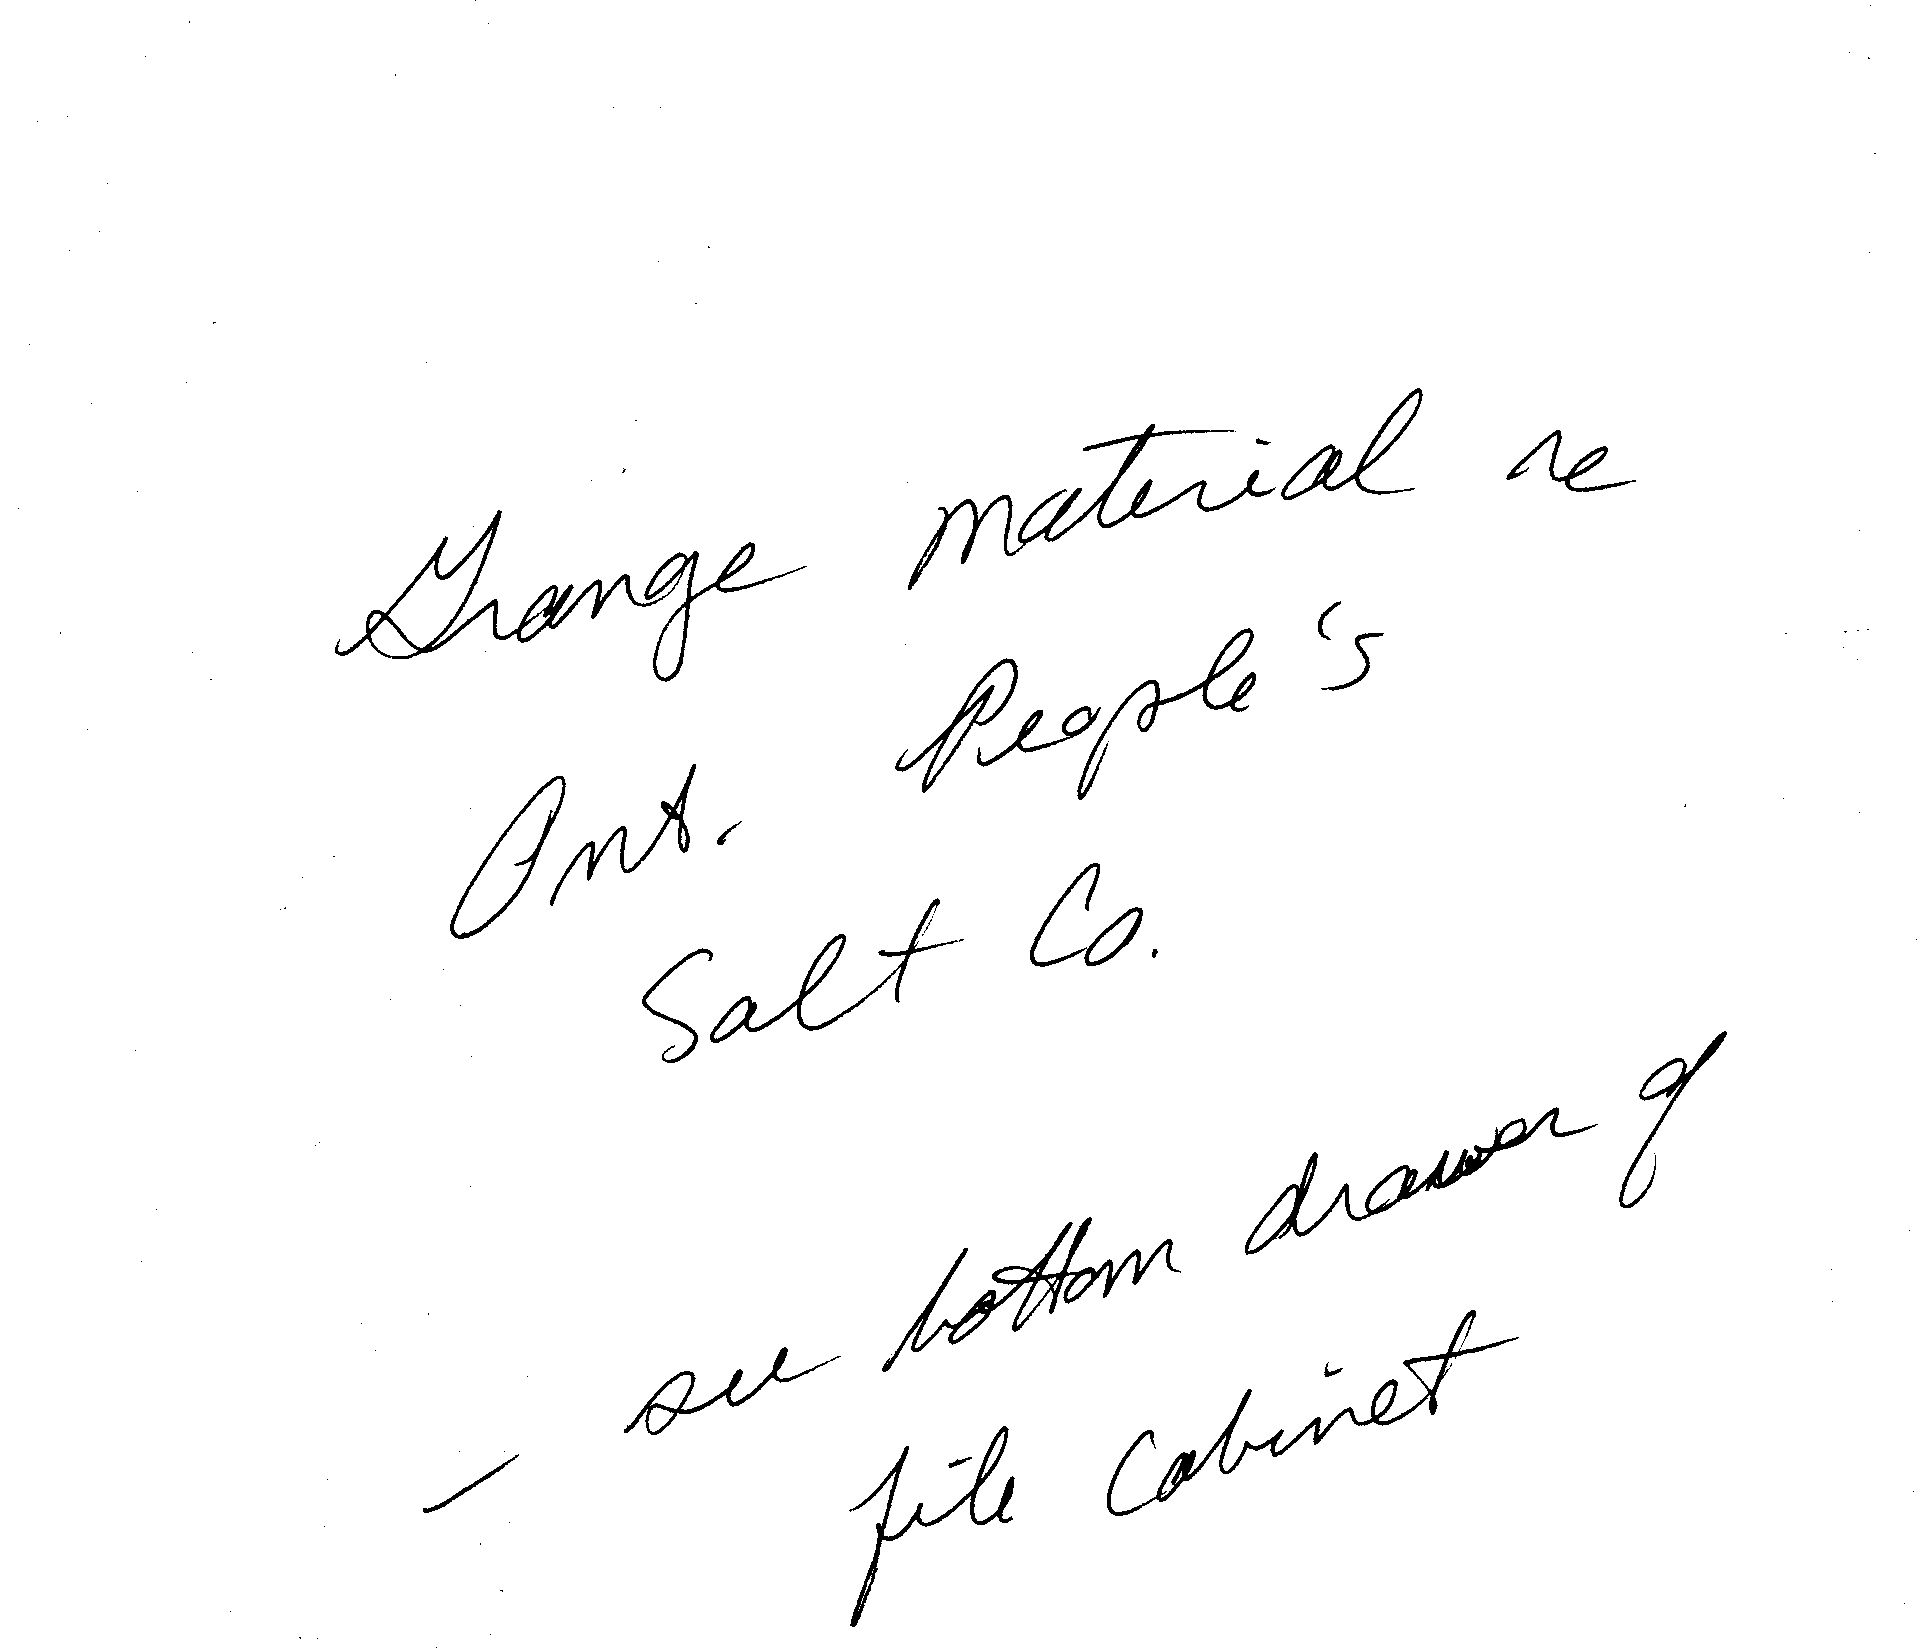 Grange Material re
Ont. People's
Salt Co.
- see bottom drawer of
file cabinet